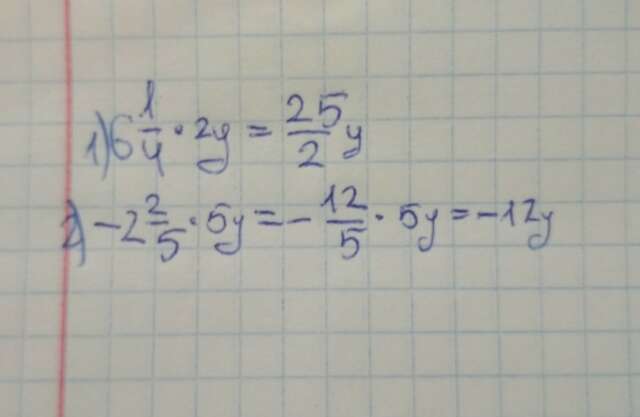 1) 6 1/4 · 2y = 25/2 y
2) - 2 2/5 · 5y = - 12/5 · 5y = - 12y